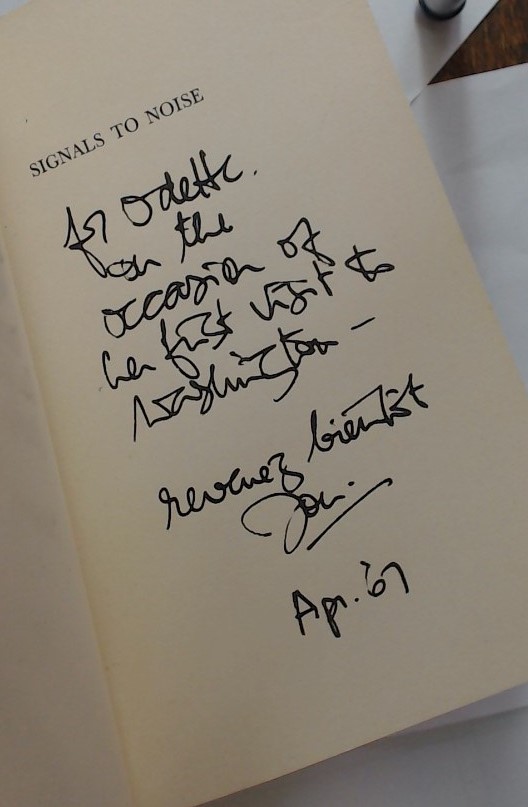 SIGNALS TO NOISE
for Odette.
on the
occasion of
her first visit to
Washington –
revenez bientôt
Jon.
Apr. '67